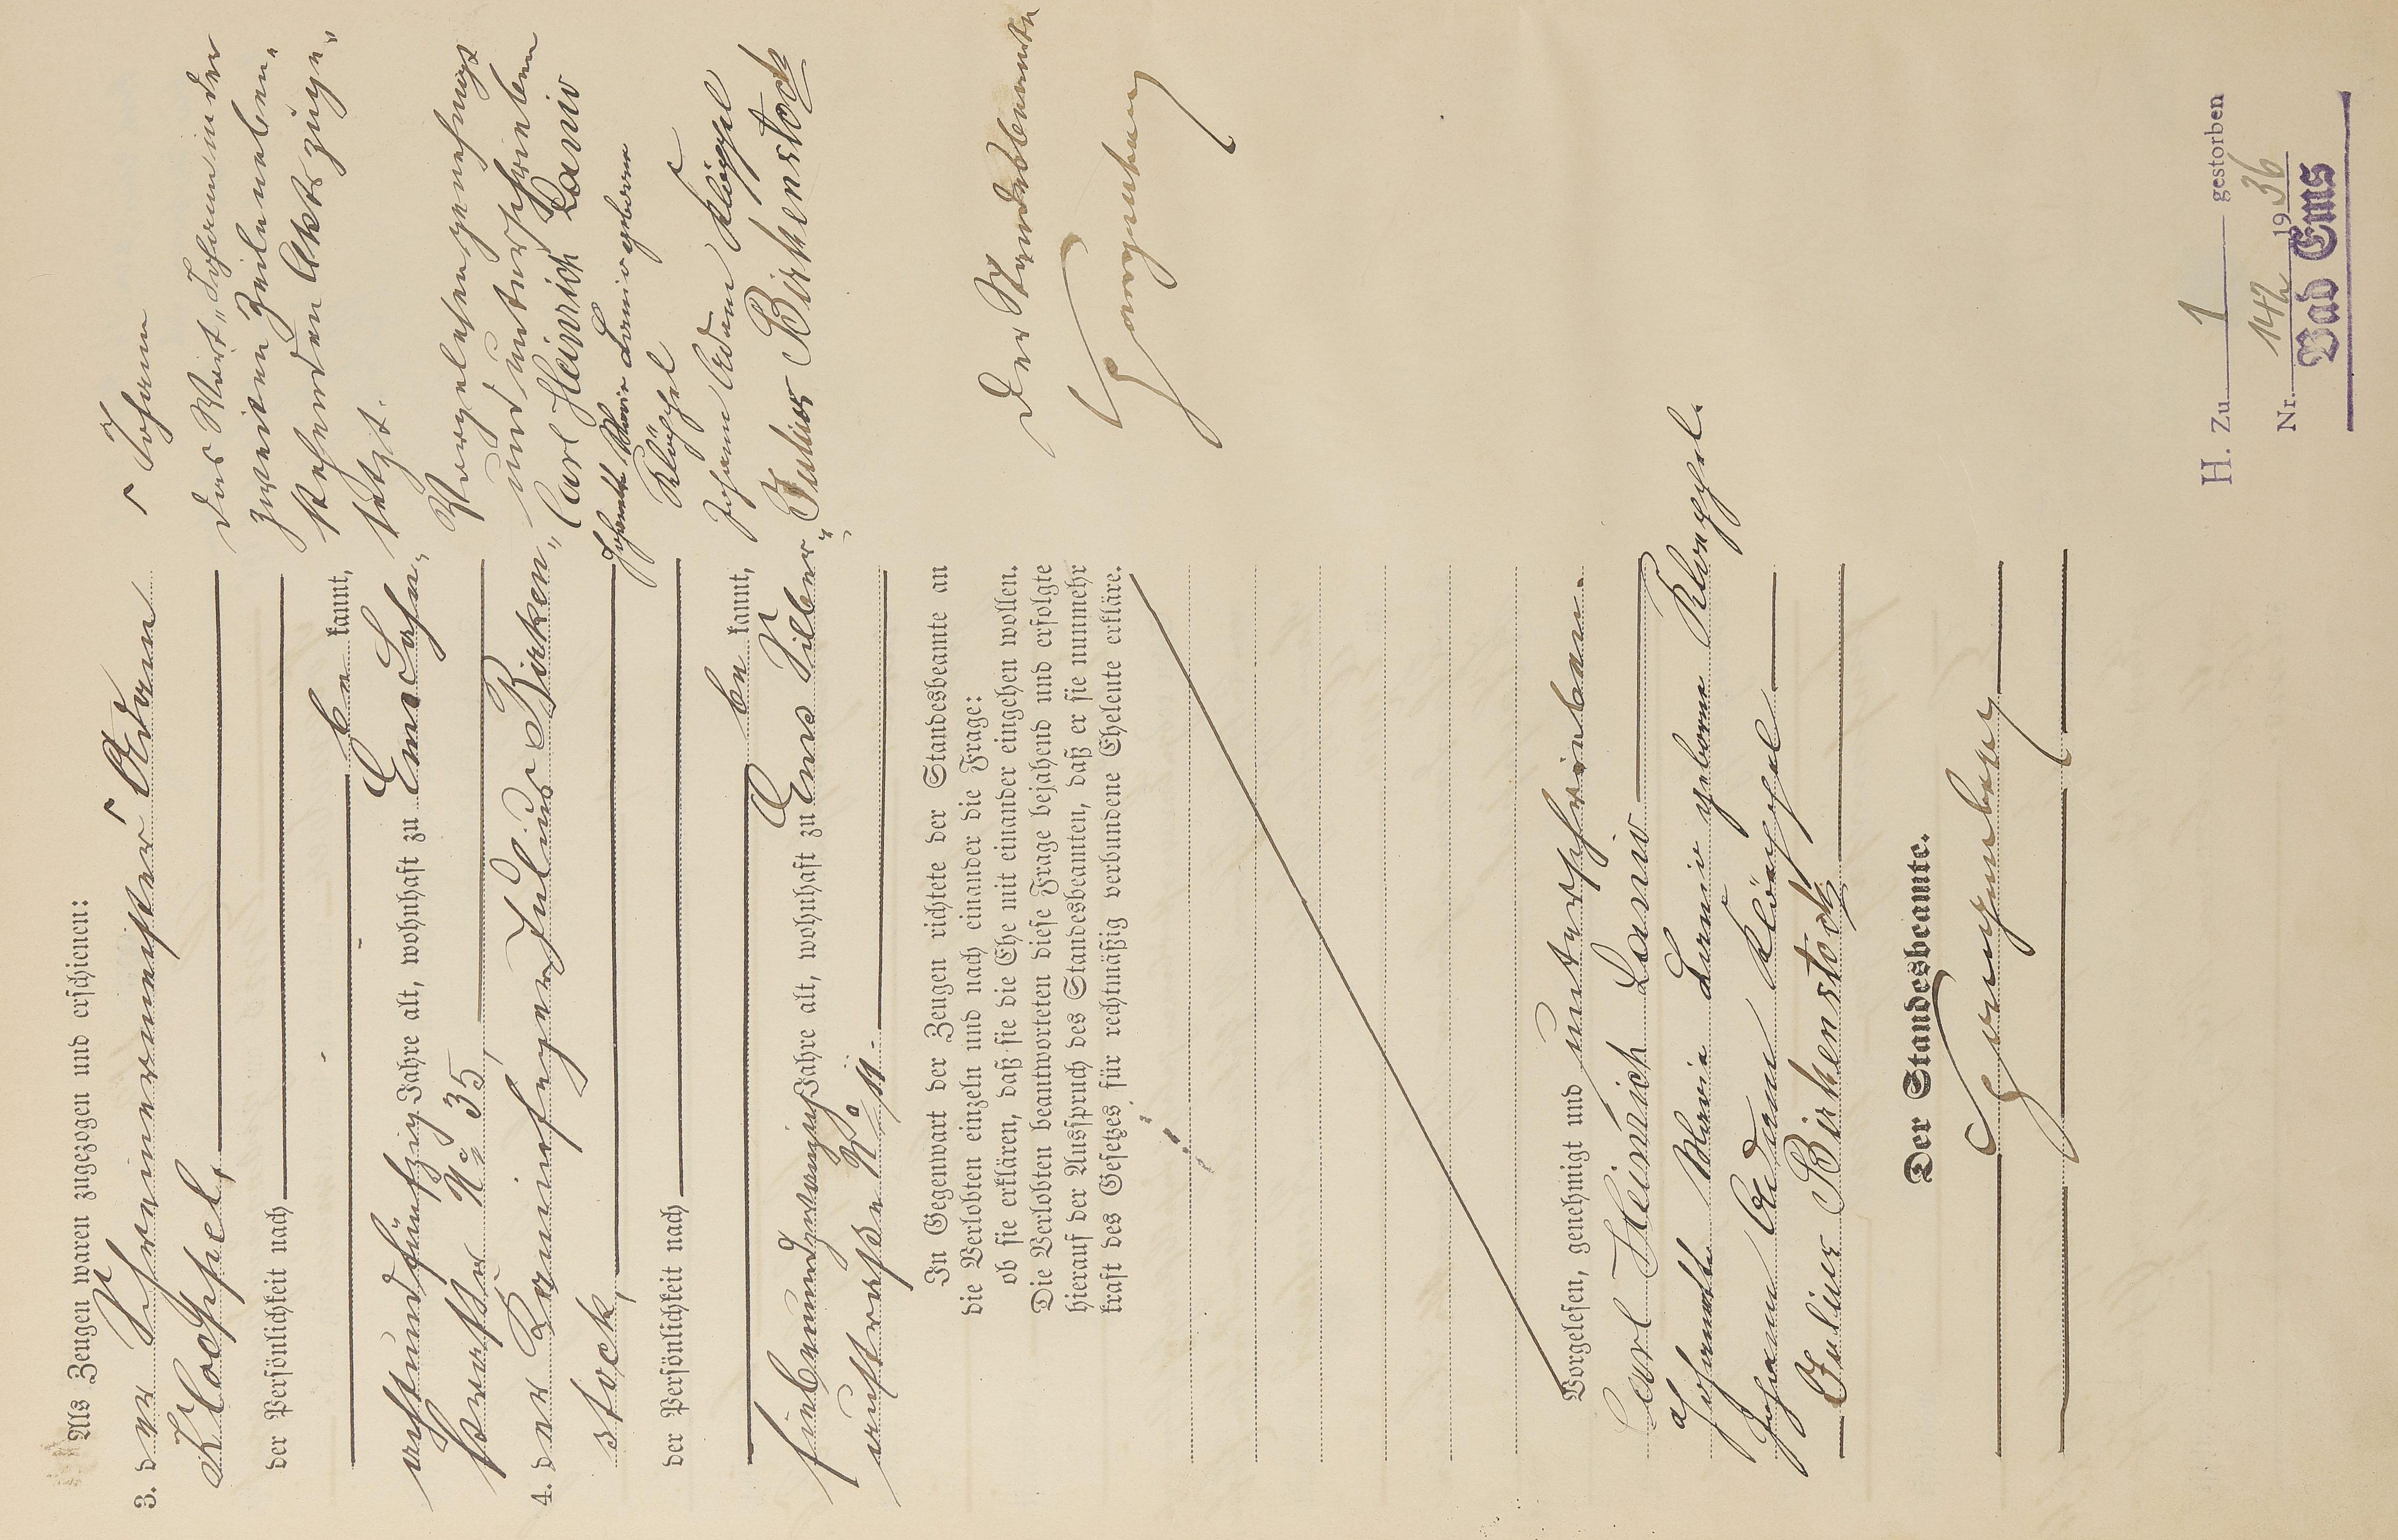 Als Zeugen waren zugezogen und erschienen:
3. der Schreinermeister ⌈ Adam
Kloeppel,
der Persönlichkeit nach
be kannt,
achtundfünfzig Jahre alt, wohnhaft zu Ems Lahn„
straße No 35,
4. der Kaminfeger Julius Birken„
stock,
der Persönlichkeit nach
be kannt,
siebenundzwanzig Jahre alt, wohnhaft zu Ems Silber„
austraße No 11.
In Gegenwart der Zeugen richtete der Standesbeamte an
die Verlobten einzeln und nach einander die Frage:
ob sie erklären, daß sie die Ehe mit einander eingehen wollen.
Die Verlobten beantworteten diese Frage bejahend und erfolgte
hierauf der Ausspruch des Standesbeamten, daß er sie nunmehr
kraft des Gesetzes für rechtmäßig verbundene Eheleute erkläre.
Vorgelesen, genehmigt und unterschrieben.
Carl Heinrich Lanio
Johannette Maria Lanio geborene Kloeppel.
Johann Adam Klöppel
Julius Birkenstock
Der Standesbeamte.
⌈ Johann
Das Wort „Johann" in der
zweiten Zeile neben„
stehenden Akts zuge„
setzt.
Vorgelesen genehmigt
und unterschrieben
Carl Heinrich Lanio
Johannette Maria Lanio geborene
Klöppel
Johann Adam Klöppel
Julius Birkenstock
Der Standesbeamte
H. Zu 1 gestorben
Nr. 142 1936
Bad Ems